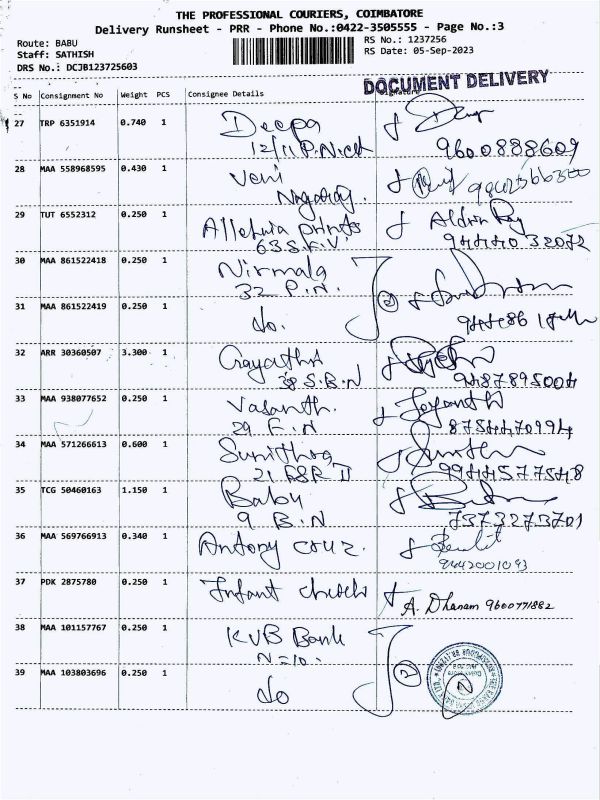 THE PROFESSIONAL COURIERS, COIMBATORE
Delivery Runsheet - PRR - Phone No.:0422-3505555 - Page No.:3
Route: BABU
RS No.: 1237256
Staff: SATHISH
RS Date: 05-Sep-2023
DRS No.: DCJB123725603
DOCUMENT DELIVERY
S No Consignment No Weight PCS Consignee Details Signature
27 TRP 6351914 0.740 1 Deepa
12/11 P.N.
9600888609
28 MAA 558968595 0.430 1 Veni
Nagaraj.
29 TUT 6552312 0.250 1 Alleluia prints Aldrin Raj
63 S.F.V. 9444032072
30 MAA 861522418 0.250 1 Nirmala
32 P.N. 2
31 MAA 861522419 0.250 1 do.
32 ARR 30360507 3.300 1 Gayathri
38 S.B.N 9487895004
33 MAA 938077652 0.250 1 Vasanth. Jayanthi
29 F.N 8754470994
34 MAA 571266613 0.600 1
21 RSR II 9944577548
35 TCG 50460163 1.150 1 Baby
9 B.N 7373273701
36 MAA 569766913 0.340 1 Antony cruz.
9442001093
37 PDK 2875780 0.250 1 Infant
A. Dhanam 9600771882
38 MAA 101157767 0.250 1 KVB Bank
N=10. 2
39 MAA 103803696 0.250 1 do
N